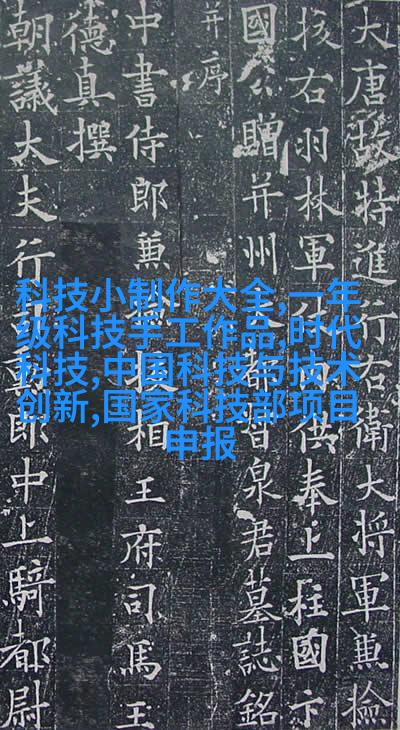 大唐故特進行右衛大將軍兼檢
校右羽林軍仗內供奉上柱國卞
國公贈并州大都督泉君墓誌銘
并序
中書侍郎兼檢校相王府司馬王
德真撰
朝議大夫行司勳郎中上騎都尉
科技小制作大全,一年
级科技手工作品,时代
科技,中国科技与技术
创新,国家科技部项目
申报